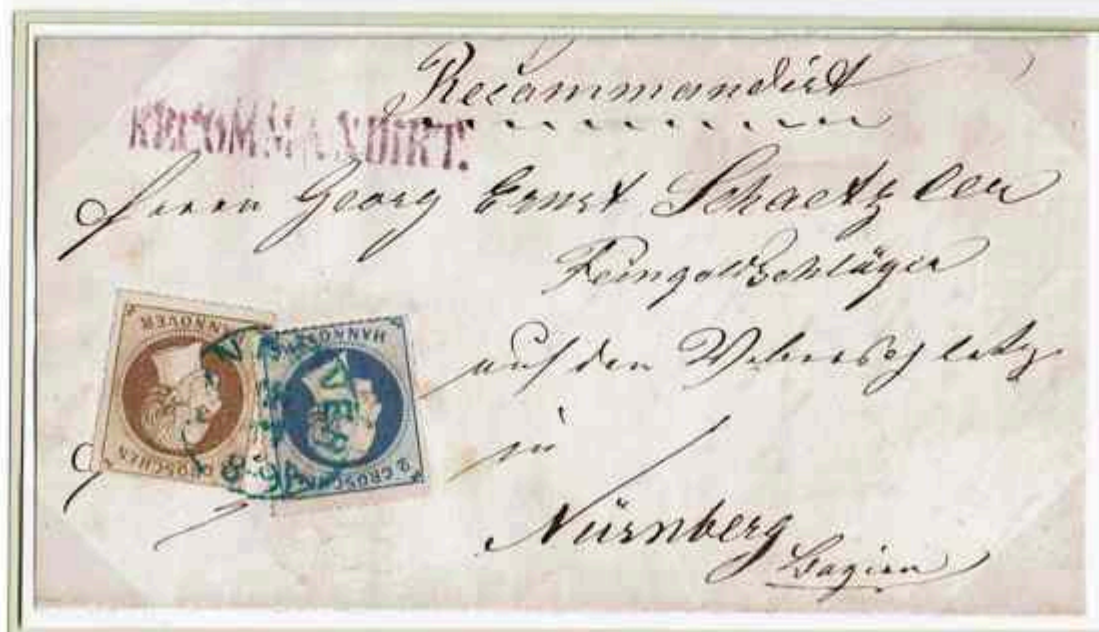 Recommandirt
RECOMMANDIRT.
Herrn Georg Ernst Schaetzler
Feingoldschläger
auf den
in
Nürnberg
HANNOVER
GROSCHEN
HANNOVER
2 GROSCHEN